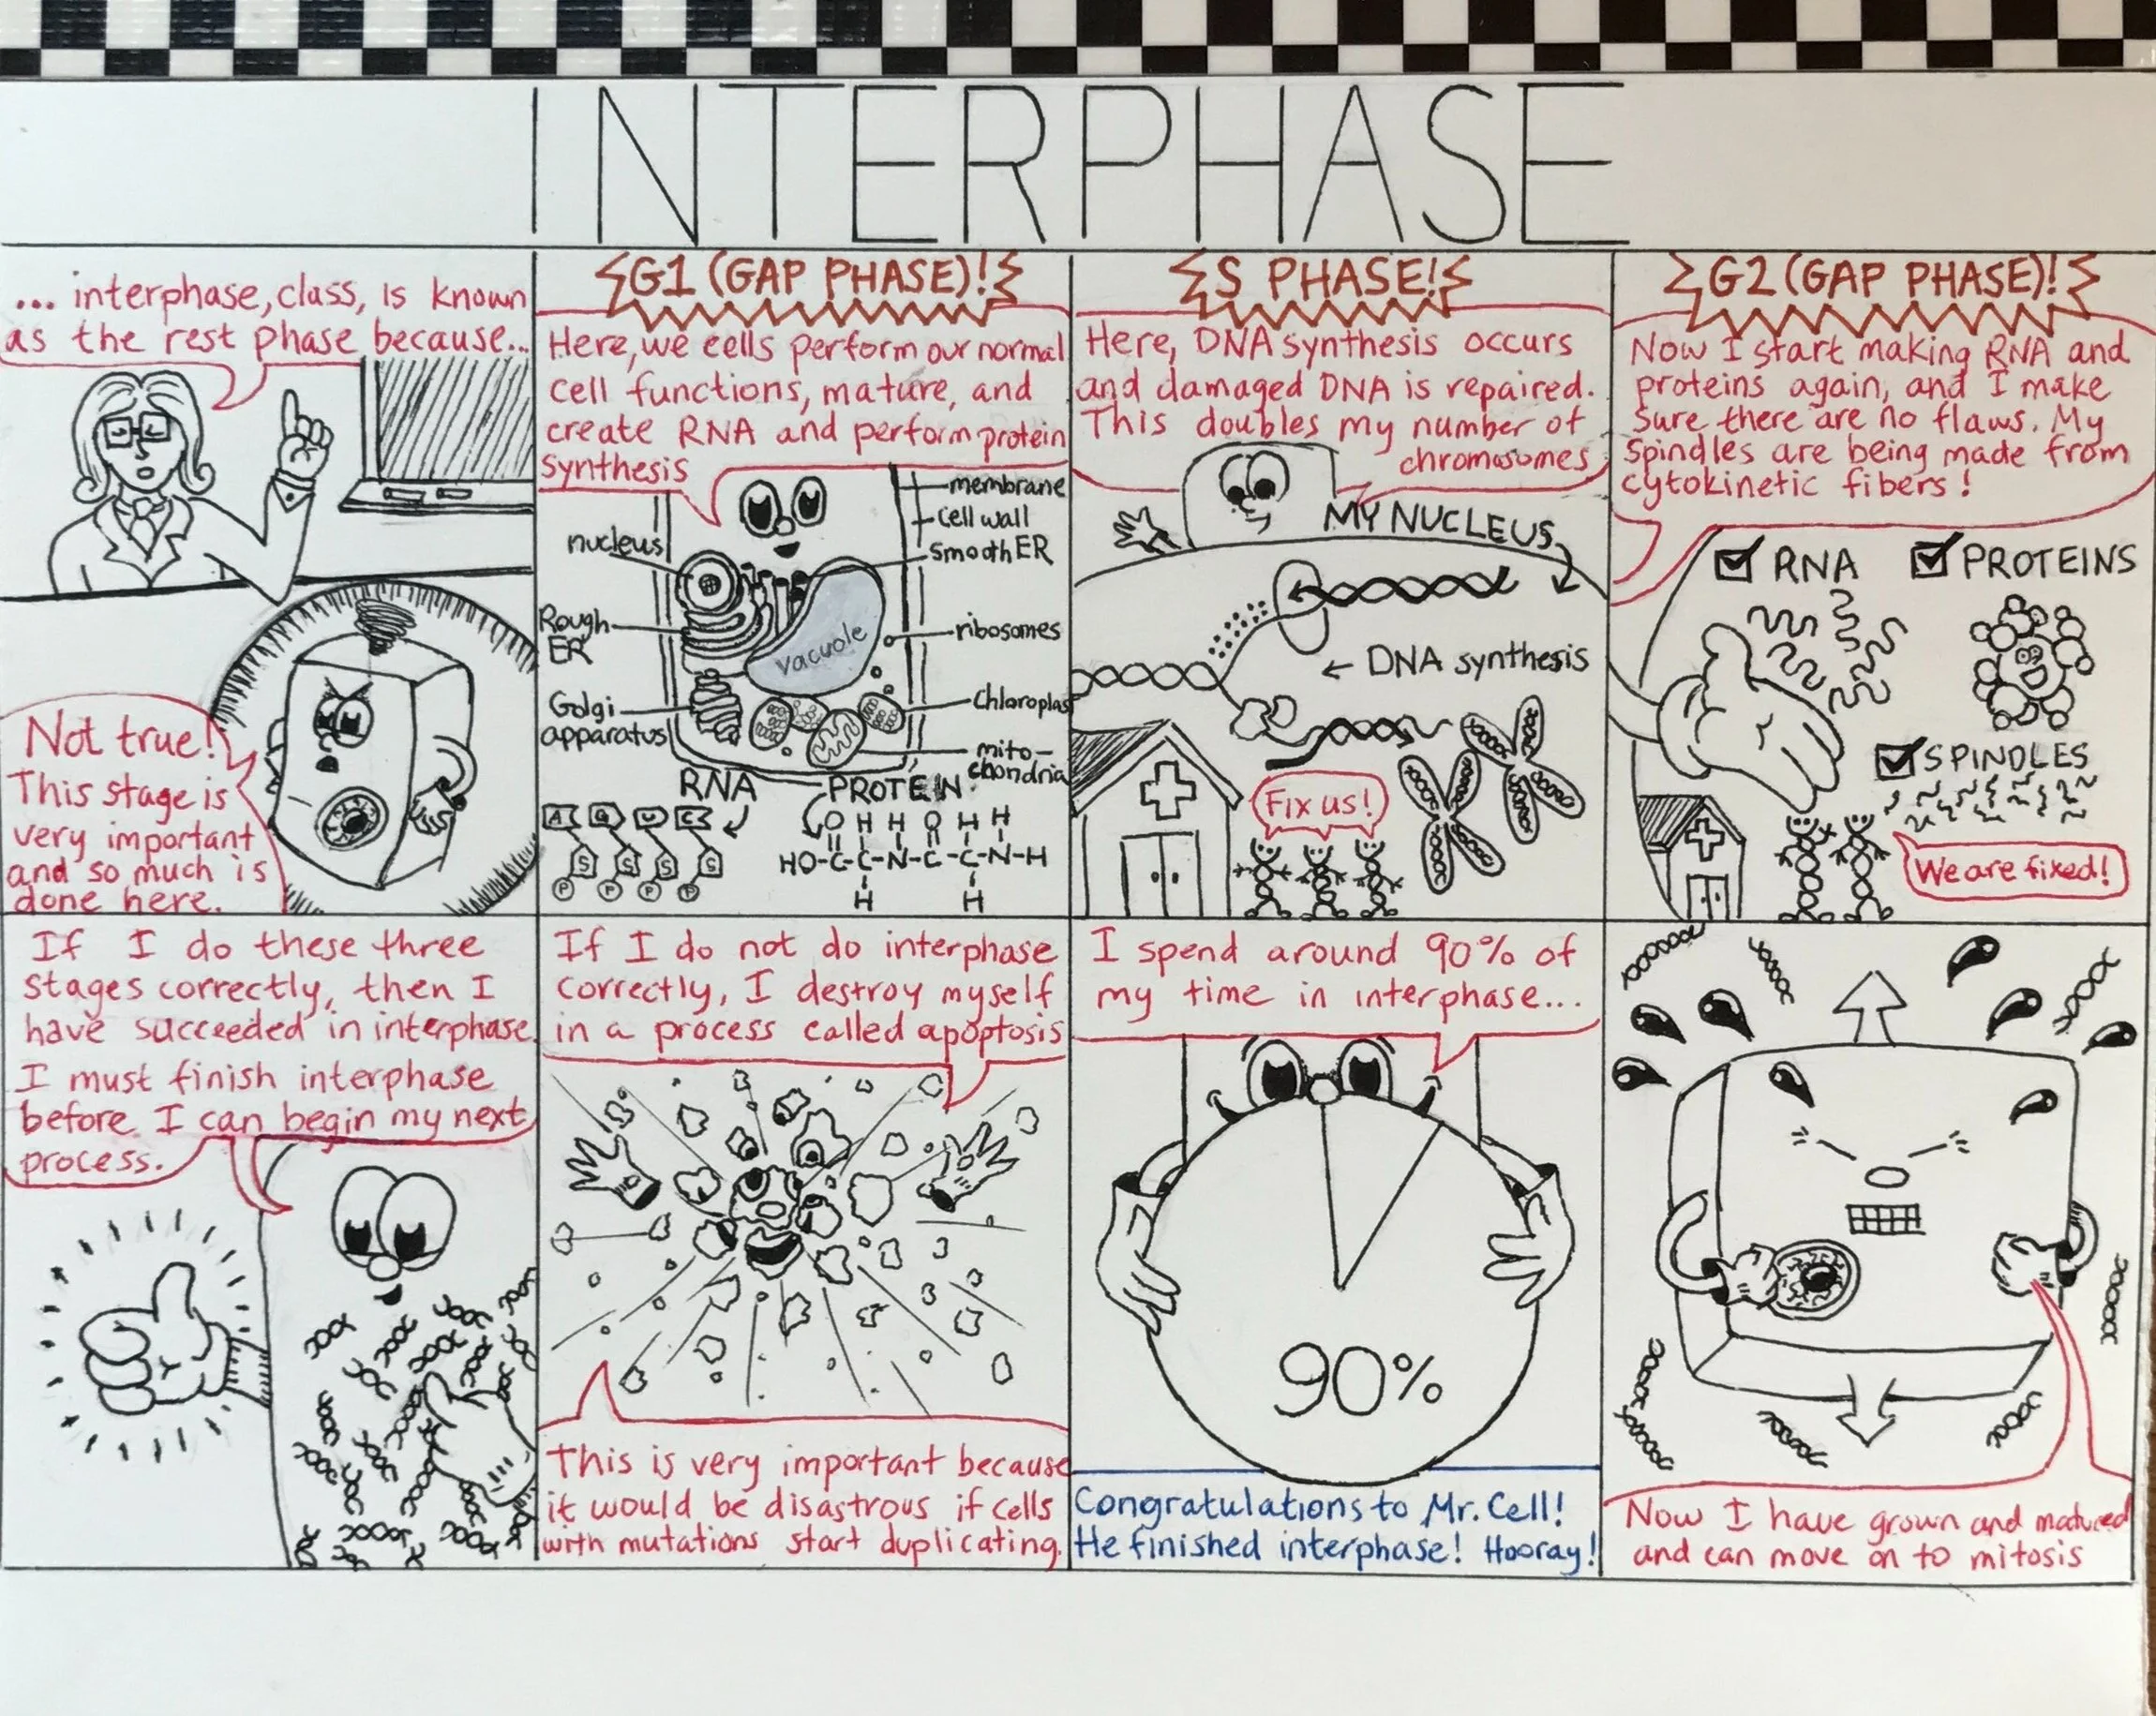 INTERPHASE
... interphase, class, is known
as the rest phase because...
Not true!
This stage is
very important
and so much is
done here.
G1 (GAP PHASE)!
Here, we cells perform our normal
cell functions, mature, and
create RNA and perform protein
synthesis
nucleus
Rough
ER
Golgi
apparatus
vacuole
membrane
cell wall
smooth ER
ribosomes
Chloroplas
mito-
chondria
RNA
A G U C
S S S S
P P P P
PROTEIN
O H H O H H
HO-C-C-N-C-C-N-H
H H
S PHASE!
Here, DNA synthesis occurs
and damaged DNA is repaired.
This doubles my number of
chromosomes
MY NUCLEUS
← DNA synthesis
Fix us!
G2 (GAP PHASE)!
Now I start making RNA and
proteins again, and I make
sure there are no flaws. My
spindles are being made from
cytokinetic fibers!
RNA
PROTEINS
SPINDLES
We are fixed!
If I do these three
stages correctly, then I
have succeeded in interphase.
I must finish interphase
before I can begin my next
process.
If I do not do interphase
correctly, I destroy myself
in a process called apoptosis
This is very important because
it would be disastrous if cells
with mutations start duplicating.
I spend around 90% of
my time in interphase...
90%
Congratulations to Mr. Cell!
He finished interphase! Hooray!
Now I have grown and matured
and can move on to mitosis